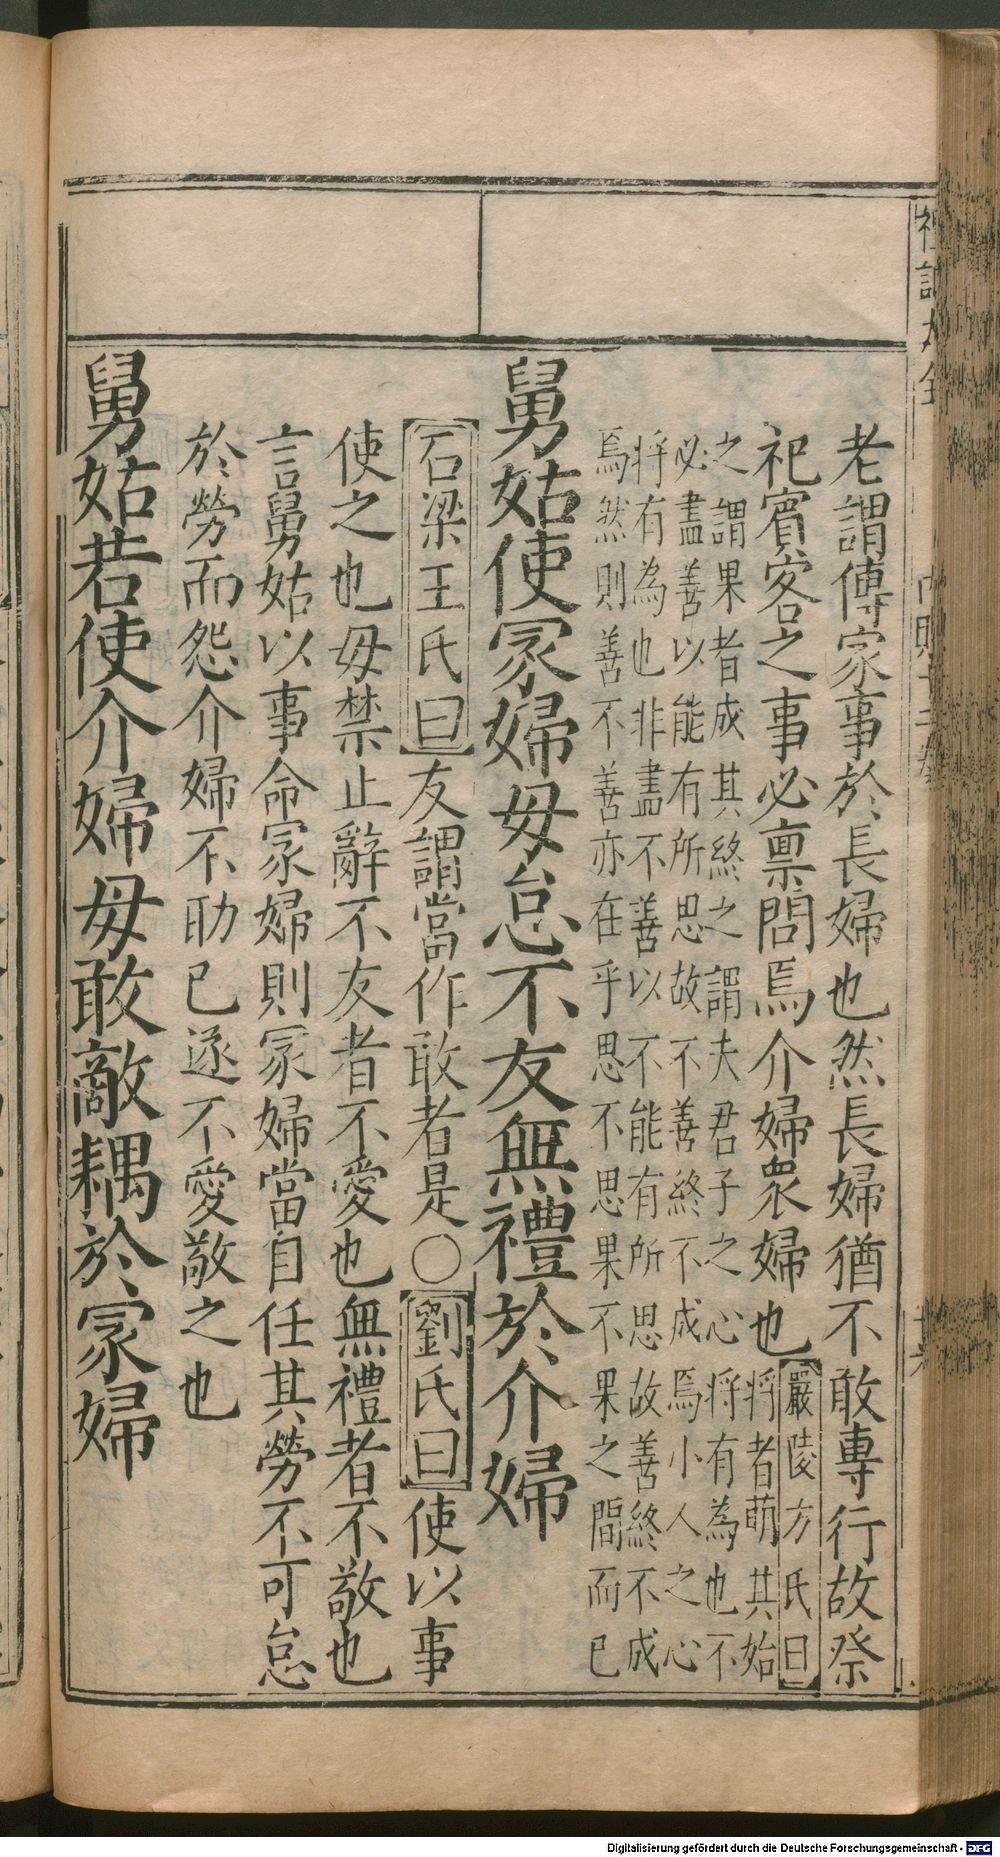 禮記大全
老謂傳家事於長婦也然長婦猶不敢專行故祭
祀賓客之事必稟問焉介婦衆婦也嚴陵方氏曰
將者萌其始
之謂果者成其終之謂夫君子之心將有為也不
必盡善以能有所思故不善終不成焉小人之心
將有為也非盡不善以不能有所思故善終不成
焉然則善不善亦在乎思不思果不果之間而已
舅姑使冢婦毋怠不友無禮於介婦
石梁王氏曰友謂當作敢者是○劉氏曰使以事
使之也毋禁止辭不友者不愛也無禮者不敬也
言舅姑以事命冢婦則冢婦當自任其勞不可怠
於勞而怨介婦不助已遂不愛敬之也
舅姑若使介婦毋敢敵耦於冢婦
Digitalisierung gefördert durch die Deutsche Forschungsgemeinschaft - DFG